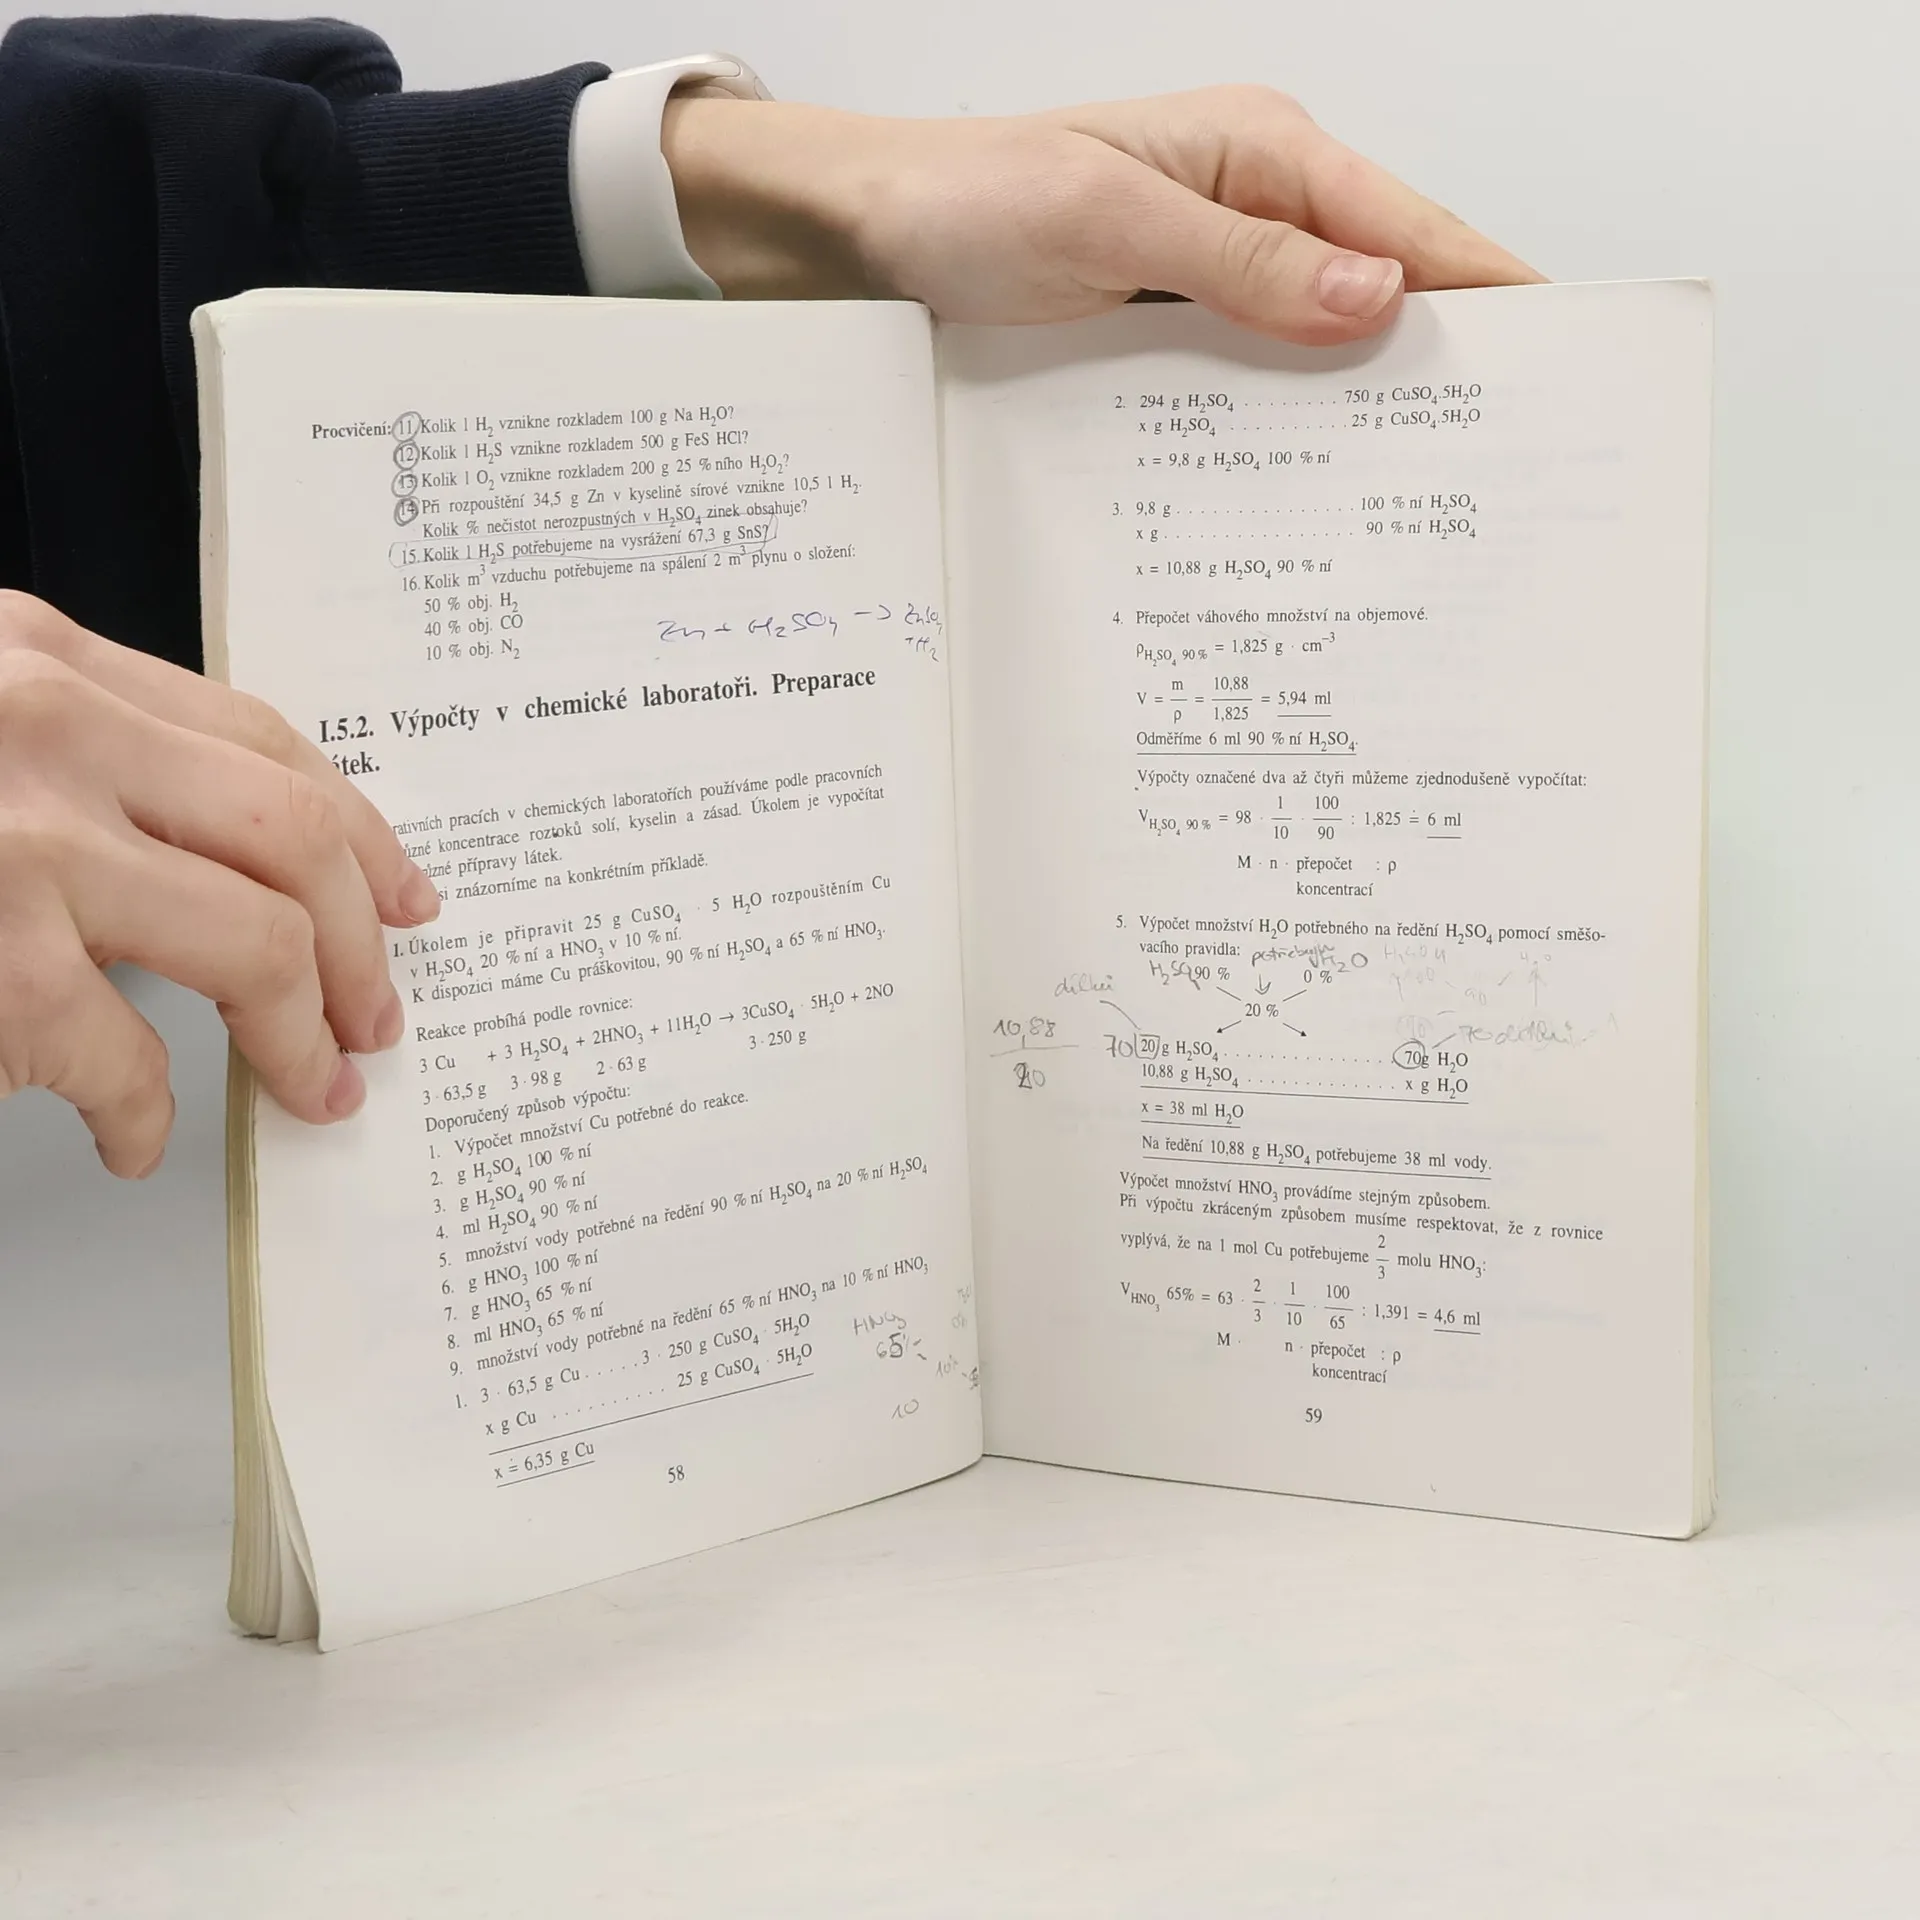 Procvičení: 11. Kolik l H₂ vznikne rozkladem 100 g Na H₂O?
12. Kolik l H₂S vznikne rozkladem 500 g FeS HCl?
13. Kolik l O₂ vznikne rozkladem 200 g 25 % ního H₂O₂?
14. Při rozpouštění 34,5 g Zn v kyselině sírové vznikne 10,5 l H₂.
Kolik % nečistot nerozpustných v H₂SO₄ zinek obsahuje?
15. Kolik l H₂S potřebujeme na vysrážení 67,3 g SnS?
16. Kolik m³ vzduchu potřebujeme na spálení 2 m³ plynu o složení:
50 % obj. H₂
40 % obj. CO
10 % obj. N₂
Zn + H₂SO₄ → ZnSO₄
+H₂
I.5.2. Výpočty v chemické laboratoři. Preparace
átek.
rativních pracích v chemických laboratořích používáme podle pracovních
ůzné koncentrace roztoků solí, kyselin a zásad. Úkolem je vypočítat
různé přípravy látek.
si znázorníme na konkrétním příkladě.
1. Úkolem je připravit 25 g CuSO₄ · 5 H₂O rozpouštěním Cu
v H₂SO₄ 20 % ní a HNO₃ v 10 % ní.
K dispozici máme Cu práškovitou, 90 % ní H₂SO₄ a 65 % ní HNO₃.
Reakce probíhá podle rovnice:
3 Cu + 3 H₂SO₄ + 2HNO₃ + 11H₂O → 3CuSO₄ · 5H₂O + 2NO
3 · 63,5 g 3 · 98 g 2 · 63 g 3 · 250 g
Doporučený způsob výpočtu:
1. Výpočet množství Cu potřebné do reakce.
2. g H₂SO₄ 100 % ní
3. g H₂SO₄ 90 % ní
4. ml H₂SO₄ 90 % ní
5. množství vody potřebné na ředění 90 % ní H₂SO₄ na 20 % ní H₂SO₄
6. g HNO₃ 100 % ní
7. g HNO₃ 65 % ní
8. ml HNO₃ 65 % ní
9. množství vody potřebné na ředění 65 % ní HNO₃ na 10 % ní HNO₃
1. 3 · 63,5 g Cu . . . . . 3 · 250 g CuSO₄ · 5H₂O
x g Cu . . . . . . . . . . 25 g CuSO₄ · 5H₂O
x ≐ 6,35 g Cu
HNO₃
65%
10
58
2. 294 g H₂SO₄ . . . . . . . . 750 g CuSO₄.5H₂O
x g H₂SO₄ . . . . . . . . . . 25 g CuSO₄.5H₂O
x = 9,8 g H₂SO₄ 100 % ní
3. 9,8 g . . . . . . . . . . . . . . . 100 % ní H₂SO₄
x g . . . . . . . . . . . . . . . . 90 % ní H₂SO₄
x = 10,88 g H₂SO₄ 90 % ní
4. Přepočet váhového množství na objemové.
ρH₂SO₄ 90 % = 1,825 g · cm⁻³
V = m/ρ = 10,88/1,825 = 5,94 ml
Odměříme 6 ml 90 % ní H₂SO₄.
Výpočty označené dva až čtyři můžeme zjednodušeně vypočítat:
VH₂SO₄ 90 % = 98 · 1/10 · 100/90 : 1,825 ≐ 6 ml
M · n · přepočet : ρ
koncentrací
5. Výpočet množství H₂O potřebného na ředění H₂SO₄ pomocí směšo-
vacího pravidla:
H₂SO₄ 90 % 0 % H₂O
20 %
10,88
20
70 20 g H₂SO₄ . . . . . . . . . . . . . . 70g H₂O
10,88 g H₂SO₄ . . . . . . . . . . . . . x g H₂O
x = 38 ml H₂O
Na ředění 10,88 g H₂SO₄ potřebujeme 38 ml vody.
Výpočet množství HNO₃ provádíme stejným způsobem.
Při výpočtu zkráceným způsobem musíme respektovat, že z rovnice
vyplývá, že na 1 mol Cu potřebujeme 2/3 molu HNO₃:
VHNO₃ 65% = 63 · 2/3 · 1/10 · 100/65 : 1,391 = 4,6 ml
M · n · přepočet : ρ
koncentrací
59